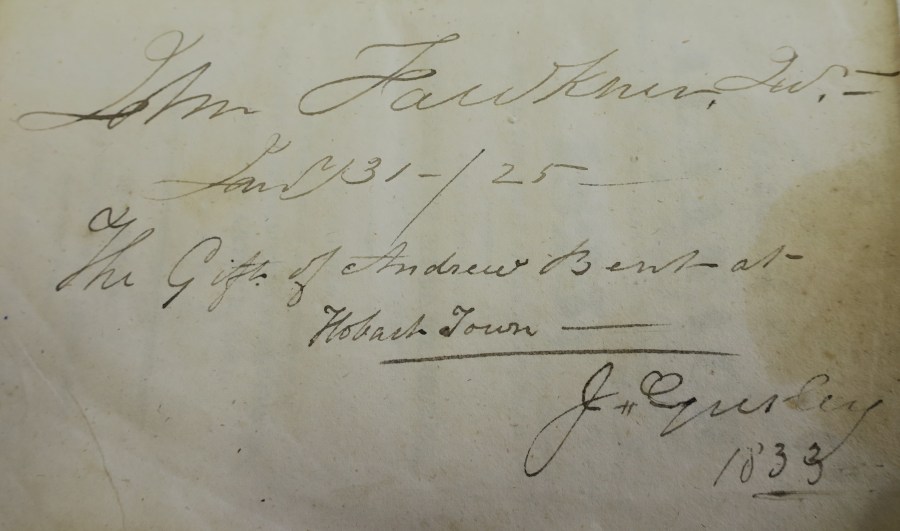 John Fawkner, Junr.
Jany 31 - / 25
The Gift of Andrew Bent at
Hobart Town
J
1833